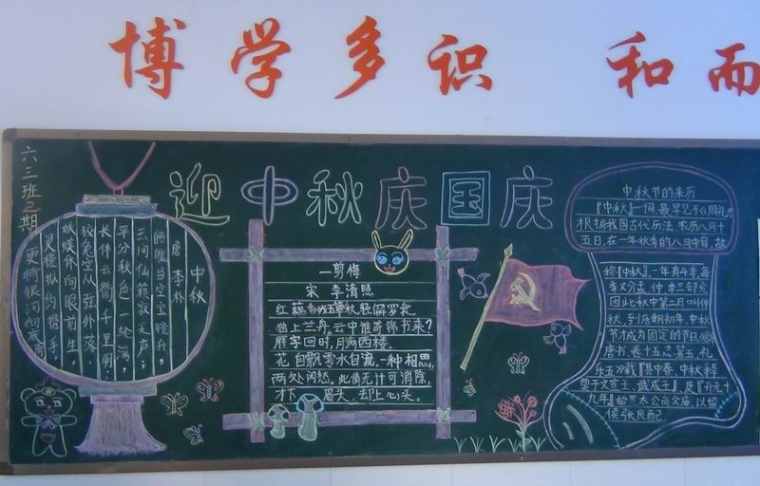 博学多识 和而
六三班二期
迎中秋庆国庆
中秋
唐 李朴
当空宝镜升,
间仙籁寂无声;
平分秋色一轮满,
长伴云衢千里明;
狡兔空从弦外落,
妖蟆休向眼前生
灵槎拟约同携手,
更待银河
一剪梅
宋 李清照
红藕香残玉簟秋,轻解罗裳,
独上兰舟,云中谁寄锦书来?
雁字回时,月满西楼.
花自飘零水自流,一种相思,
两处闲愁,此情无计可消除,
才下眉头,却上心头.
中秋节的来历
『中秋』一词,最早见于《周礼》
根据我国古代历法,农历八月十
五日,在一年秋季的八月中旬,故
称『中秋』一年有四季,每
季又分孟、仲、季三部分
因此秋中第二月叫仲
秋,到唐朝初年,中秋
节才成为固定的节日
唐书,卷十五 礼
乐五》载『其中春、中秋释
奠于文宣王、武成王』,及『开元十
九年』始置太公尚父庙,以留
侯张良配